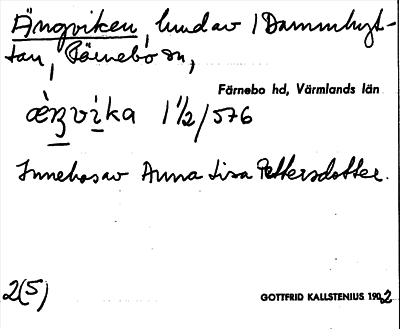 Ängviken, lund av 1 Dammhyt-
tan, Färnebo sn,
Färnebo hd, Värmlands län
1 1/2 / 576
Innehas av Anna Lisa Pettersdotter.
2(5)
GOTTFRID KALLSTENIUS 1902